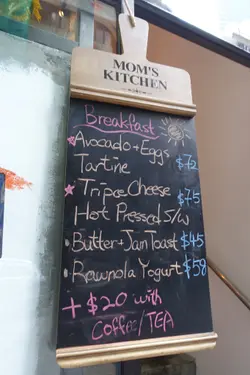 MOM'S
KITCHEN
Breakfast
Avocado + Eggs
Tartine $72
Tripce Cheese
Hot Pressed S/w $75
Butter + Jam Toast $45
Rawnola Yogurt $58
+ $20 with
Coffee/TEA